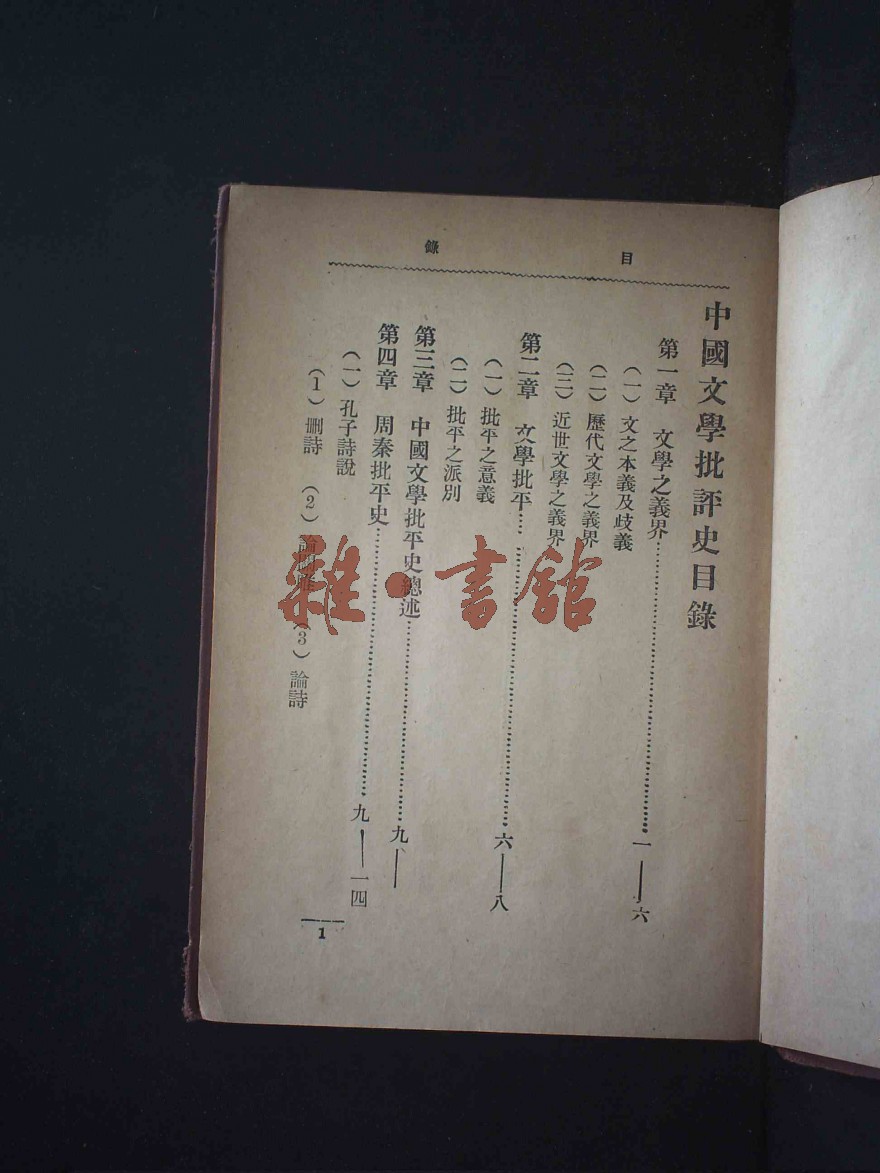 目錄
中國文學批評史目錄
第一章 文學之義界……一——六
(一)文之本義及歧義
(二)歷代文學之義界
(三)近世文學之義界
第二章 文學批平……六——八
(一)批平之意義
(二)批平之派別
第三章 中國文學批平史總述……九——
第四章 周秦批平史……九——一四
(一)孔子詩說
(1)删詩 (2) (3)論詩
1
雜·書館